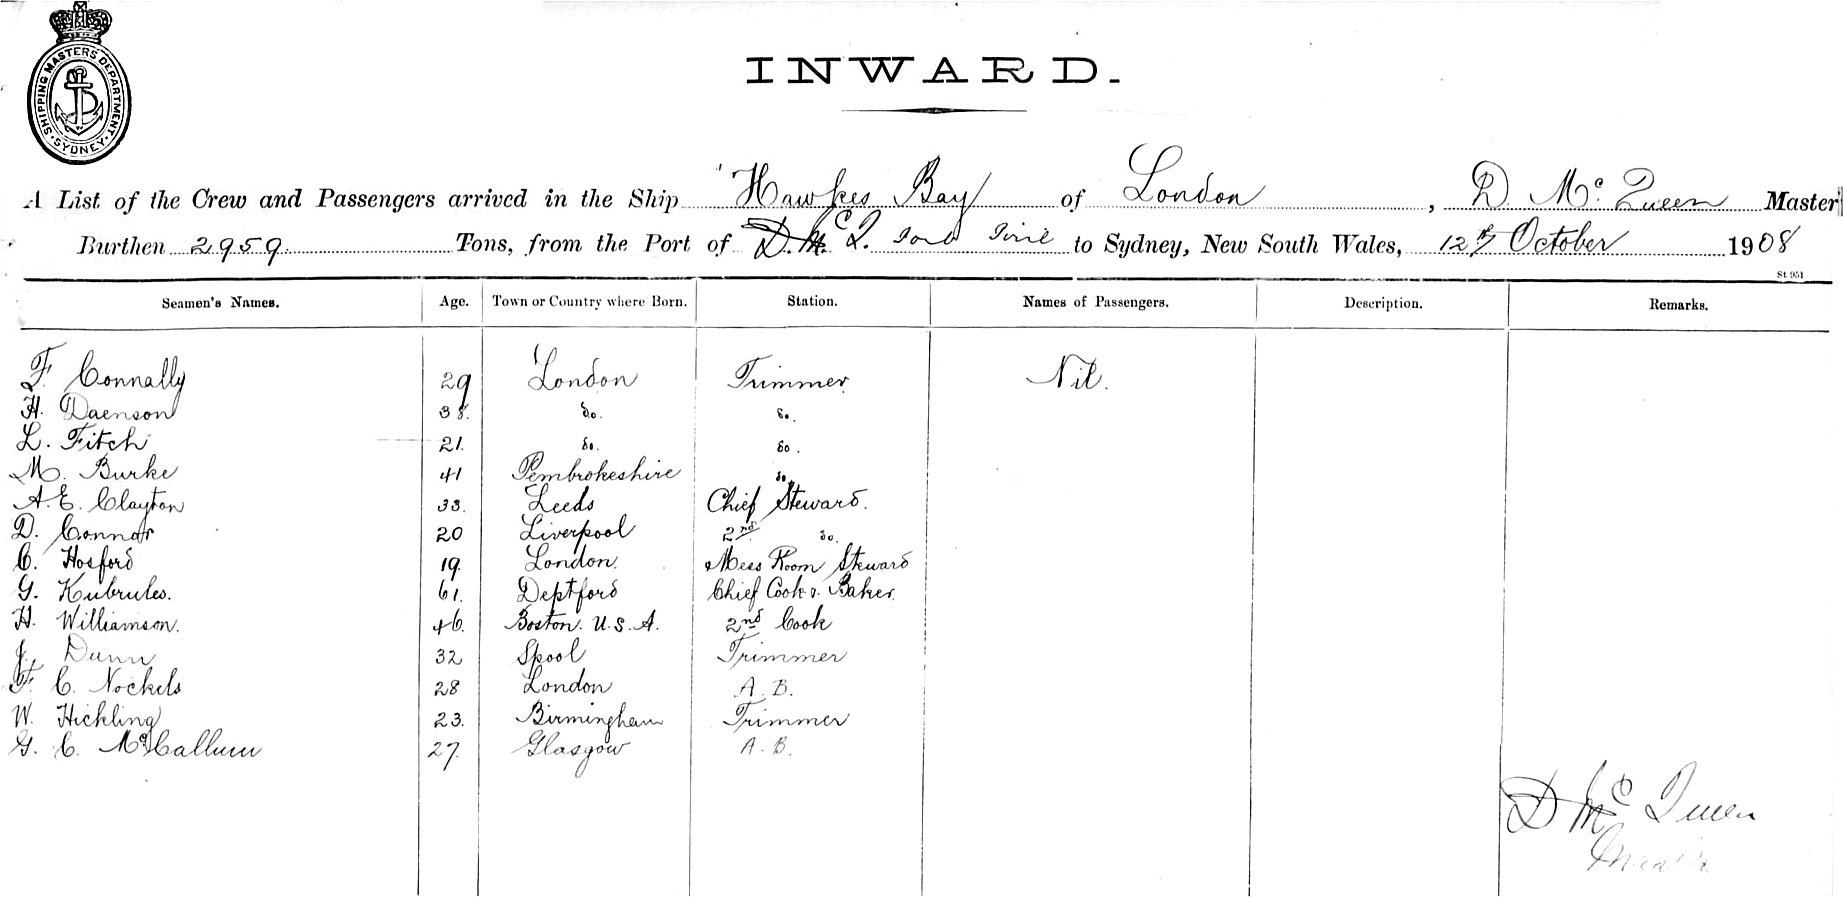 SHIPPING MASTERS DEPARTMENT · SYDNEY ·
INWARD.
A List of the Crew and Passengers arrived in the Ship Hawkes Bay of London, D Mc Queen Master
Burthen 2959 Tons, from the Port of D. Mc Q. to Sydney, New South Wales, 12th October 1908
St 951
Seamen's Names. Age. Town or Country where Born. Station. Names of Passengers. Description. Remarks.
F. Connally 29 London Trimmer Nil.
H. Daenson 38. do. do.
L. Fitch 21. do. do.
M. Burke 41 Pembrokeshire do.
A. E. Clayton 33. Leeds Chief Steward.
D. Connor 20 Liverpool 2nd do.
C. Hosford 19. London. Mess Room Steward
G. Kubrules. 61. Deptford Chief Cook & Baker.
H. Williamson. 46. Boston. U.S.A. 2nd Cook
J. Dunn 32 Spool Trimmer
F. C. Nockels 28 London A.B.
W. Hickling 23. Birmingham Trimmer
G. C. McCallum 27. Glasgow A.B.
D Mc Queen
Master